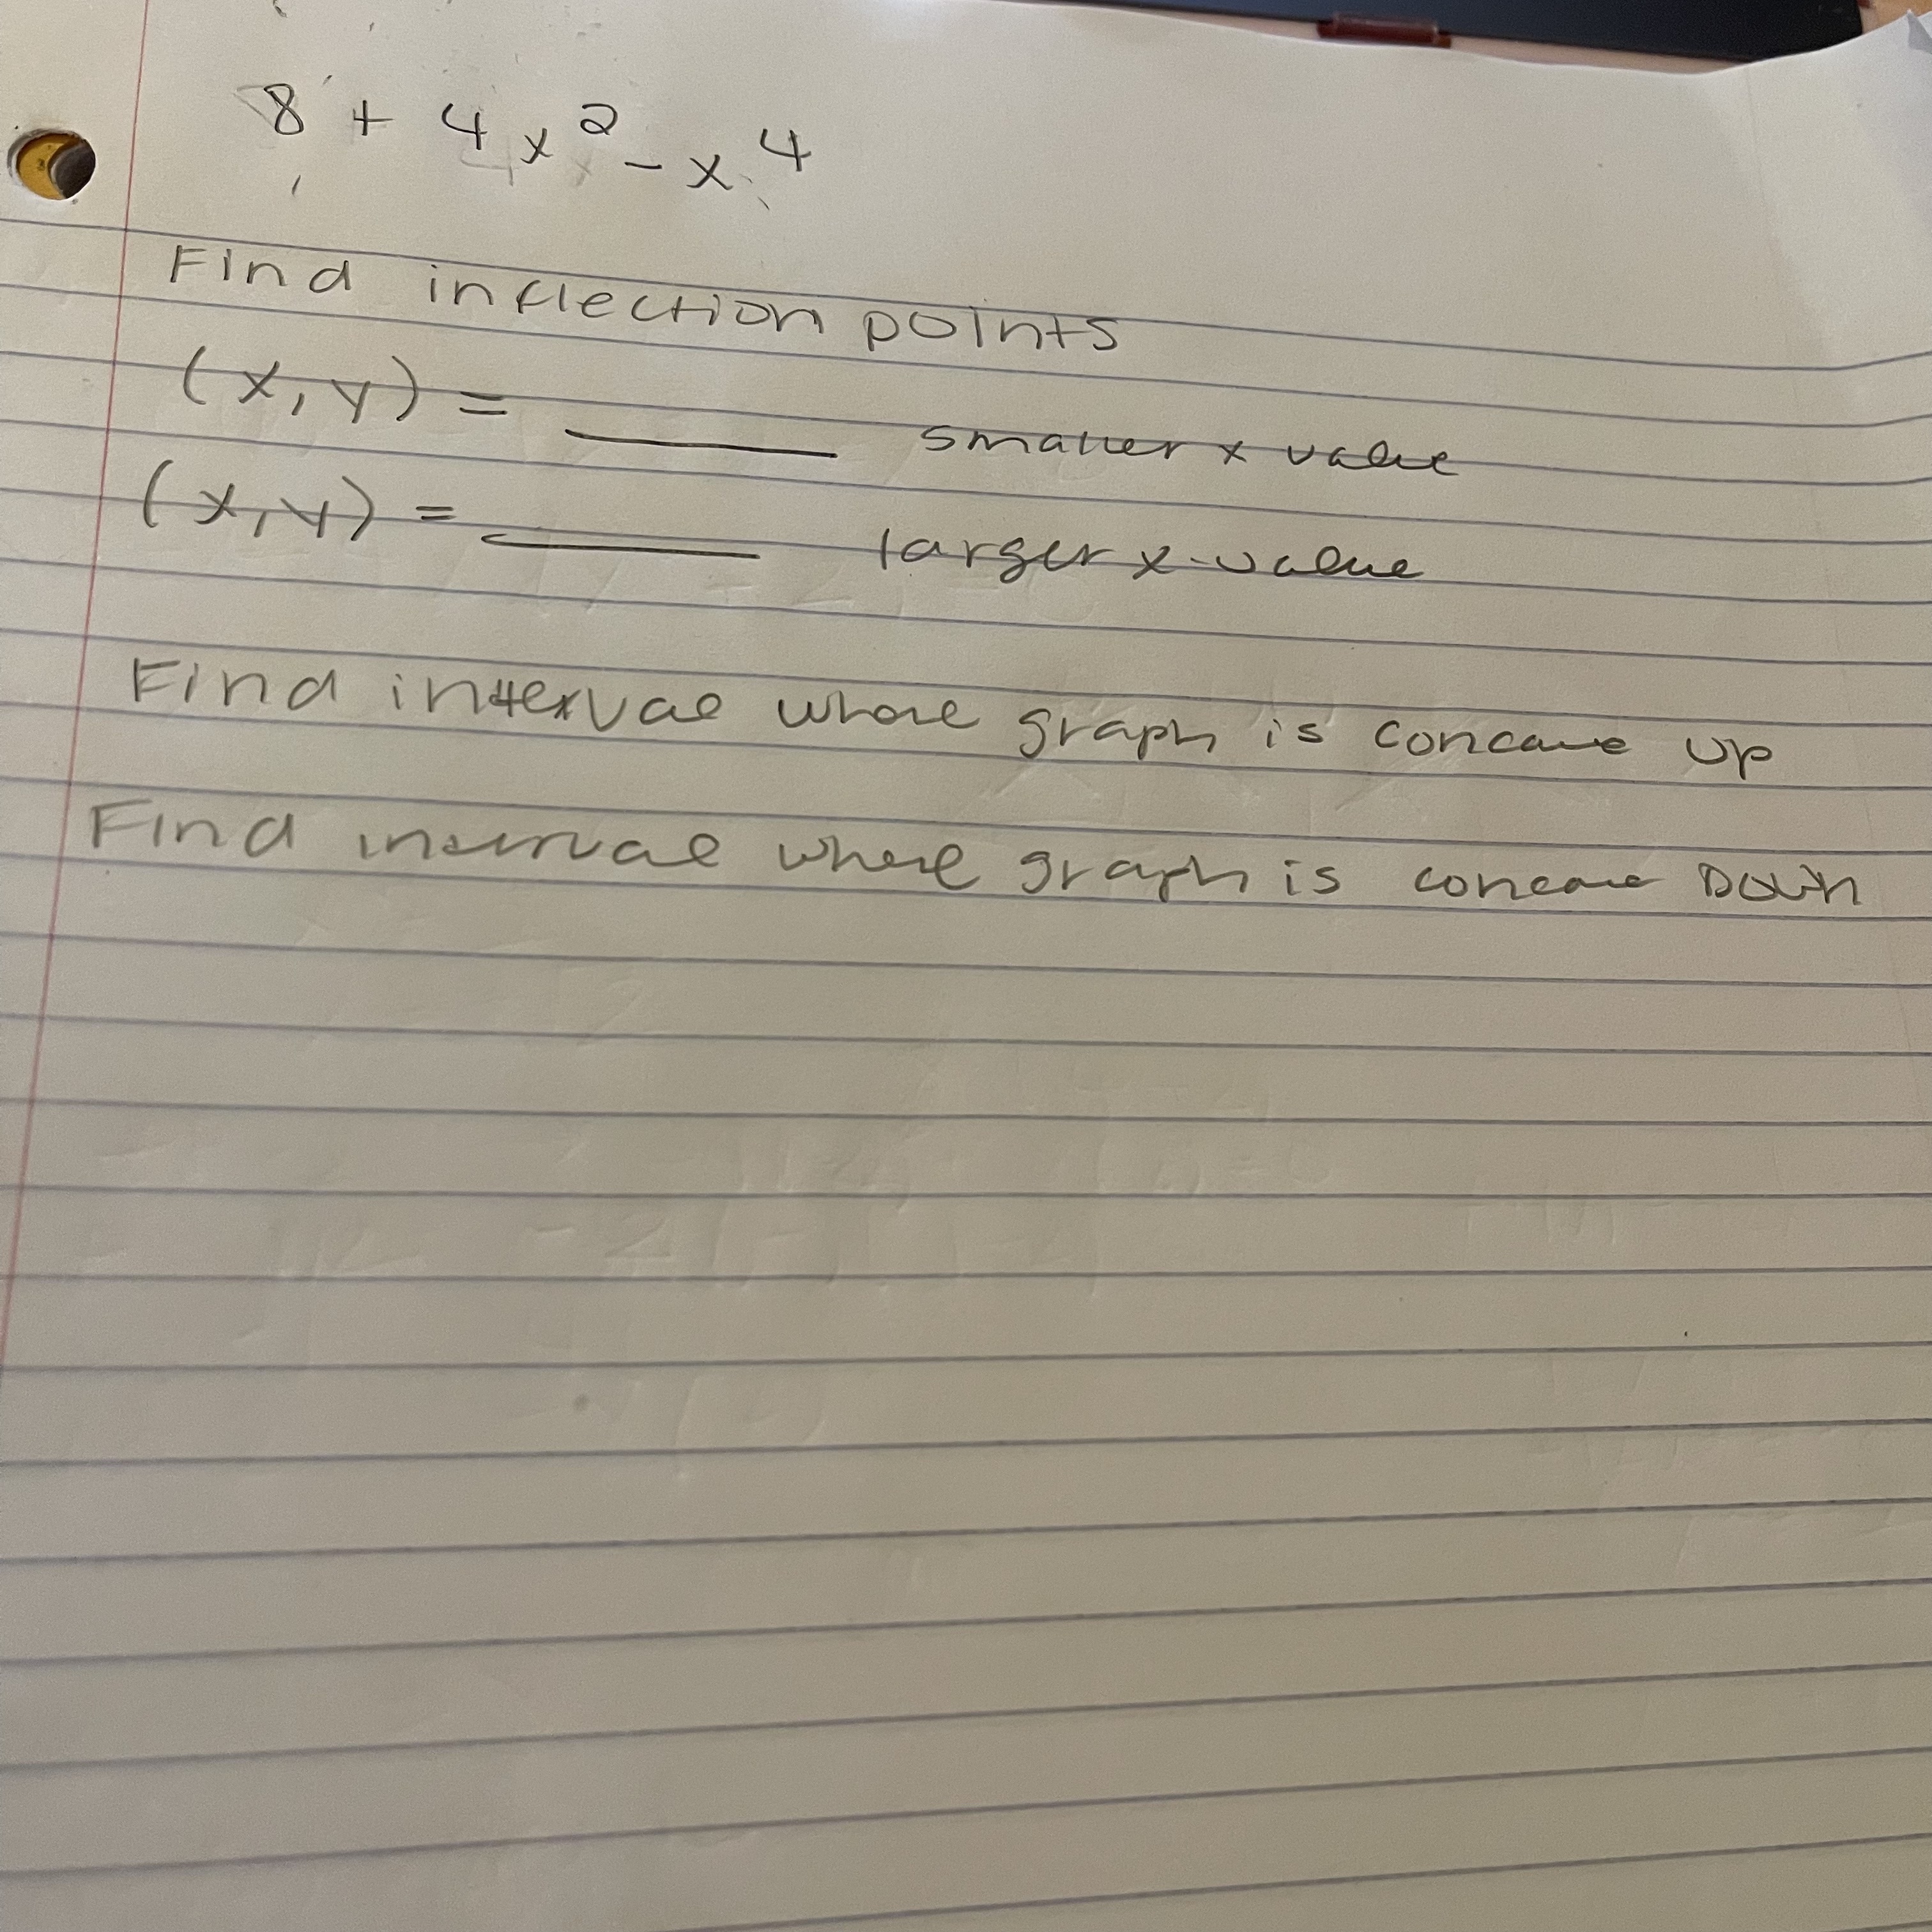 8 + 4x² - x⁴
Find inflection points
(x, y) = ______ smaller x value
(x, y) = ______ larger x-value
Find interval where graph is concave up
Find interval where graph is concave Down